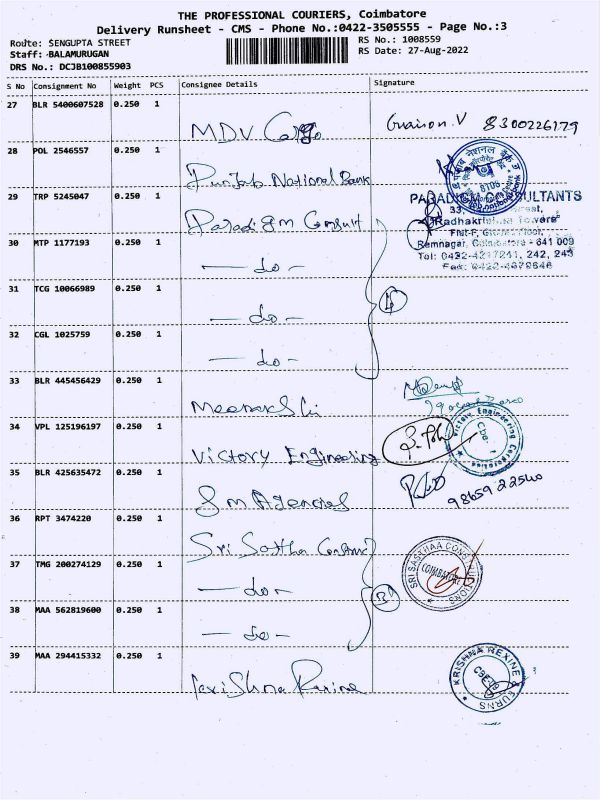 THE PROFESSIONAL COURIERS, Coimbatore
Delivery Runsheet - CMS - Phone No.:0422-3505555 - Page No.:3
Route: SENGUPTA STREET
RS No.: 1008559
Staff: BALAMURUGAN
RS Date: 27-Aug-2022
DRS No.: DCJB100855903
S No Consignment No Weight PCS Consignee Details Signature
27 BLR 5400607528 0.250 1
MDV Cargo
8300226179
28 POL 2546557 0.250 1
Punjab National Bank
8106
29 TRP 5245047 0.250 1
Paradigm Consult
PARADIGM CONSULTANTS
"Radhakrishna Towers"
Ramnagar, Coimbatore - 641 009
Tel: 0422-4217241, 242, 243
30 MTP 1177193 0.250 1
— do —
31 TCG 10066989 0.250 1
— do —
32 CGL 1025759 0.250 1
— do —
33 BLR 445456429 0.250 1
Meenakshi
34 VPL 125196197 0.250 1
Victory Engineering
Victory Engineering Corporation
Cbe.
35 BLR 425635472 0.250 1
S M Agencies
98659 22540
36 RPT 3474220 0.250 1
Sri Sastha
37 TMG 200274129 0.250 1
— do —
SRI SASTHAA CONSTRUCTIONS
COIMBATORE
38 MAA 562819600 0.250 1
— do —
39 MAA 294415332 0.250 1
Krishna Rexine
KRISHNA REXINE & FURNS